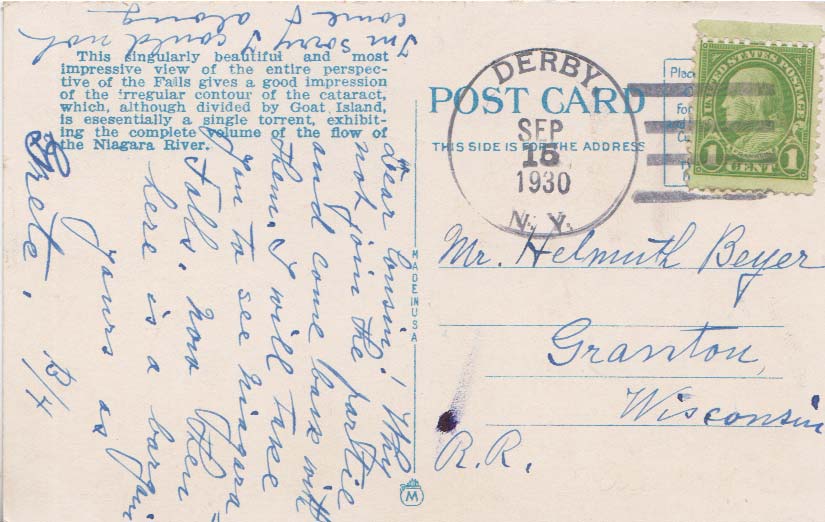 This singularly beautiful and most
impressive view of the entire perspec-
tive of the Falls gives a good impression
of the irregular contour of the cataract,
which, although divided by Goat Island,
is esesentially a single torrent, exhibit-
ing the complete volume of the flow of
the Niagara River.
POST CARD
THIS SIDE IS FOR THE ADDRESS
DERBY,
SEP
15
1930
N. Y.
Place
UNITED STATES POSTAGE
1 CENT 1
MADE IN USA
M
Mr. Helmuth Beyer
Granton,
Wisconsin
R.R.
Dear Cousin! Why
not join the
and come back with
them. I will take
you to see Niagara
Falls. Now then
here is a bargain
yours as
Grete.
I'm sorry I could not
come along